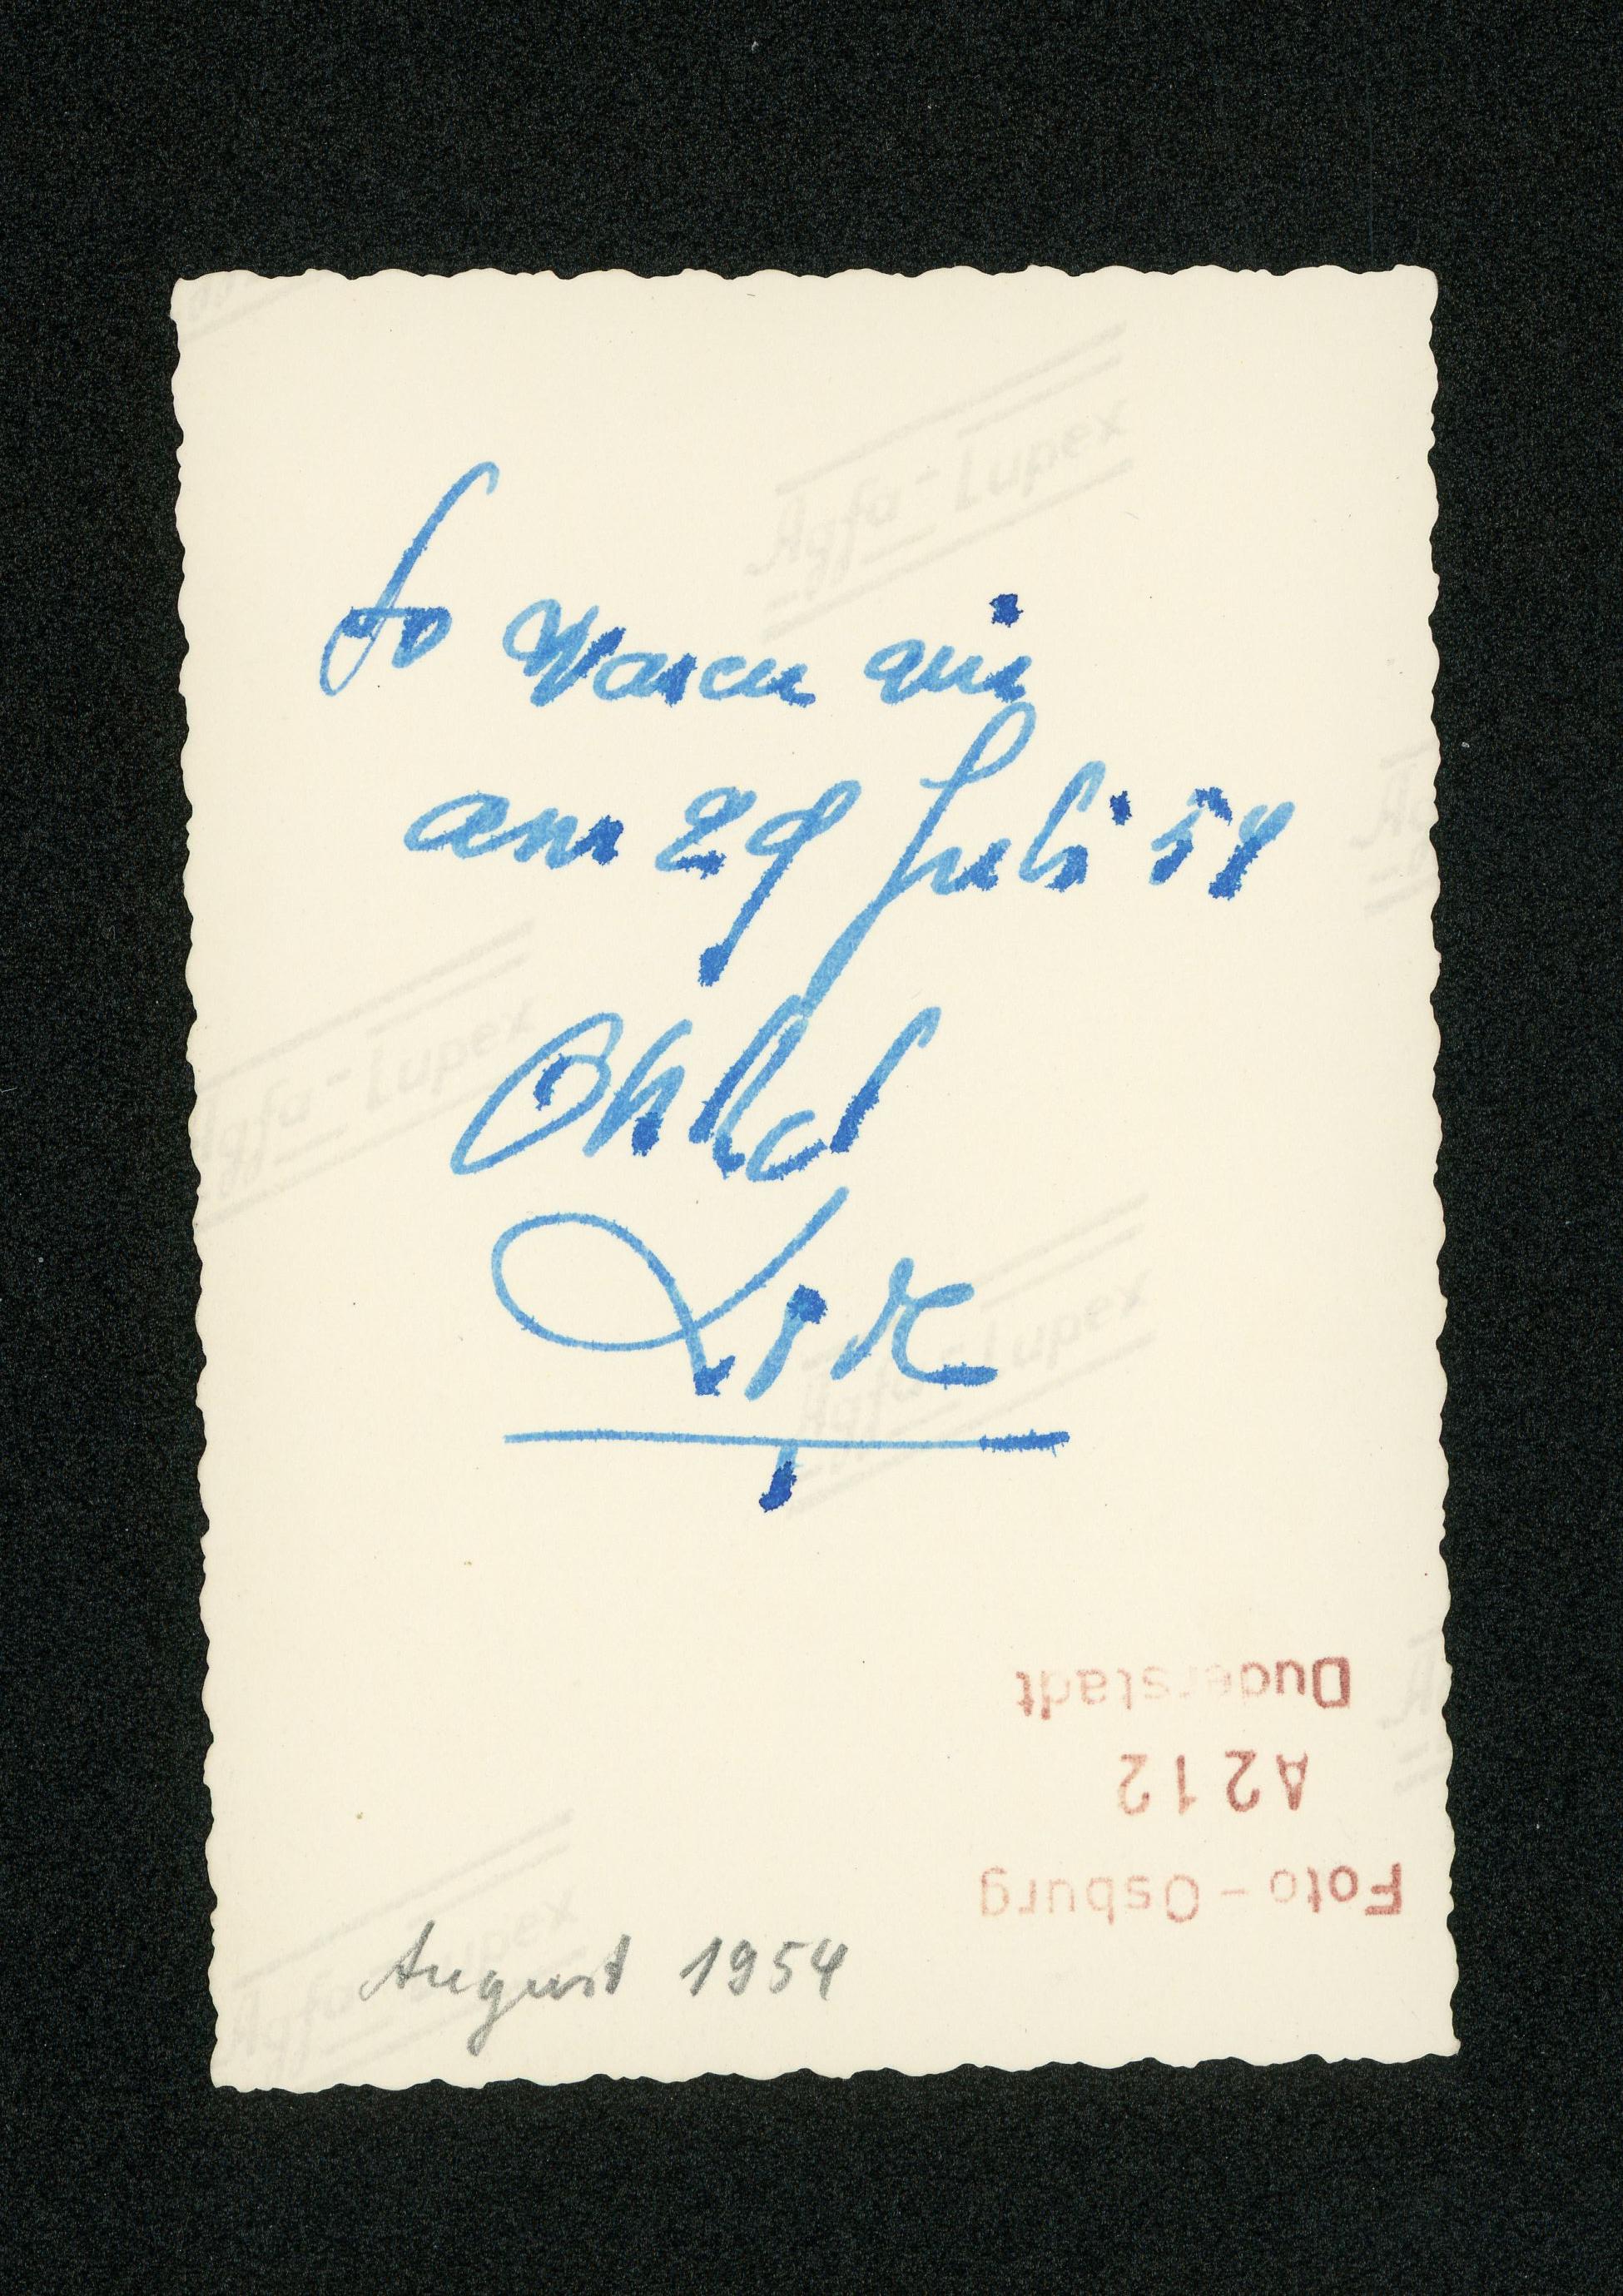 So waren wir
am 29 Juli 54
Onkel
August 1954
Foto-Osburg
A212
Duderstadt
Agfa-Lupex
Agfa-Lupex
Agfa-Lupex
Agfa-Lupex